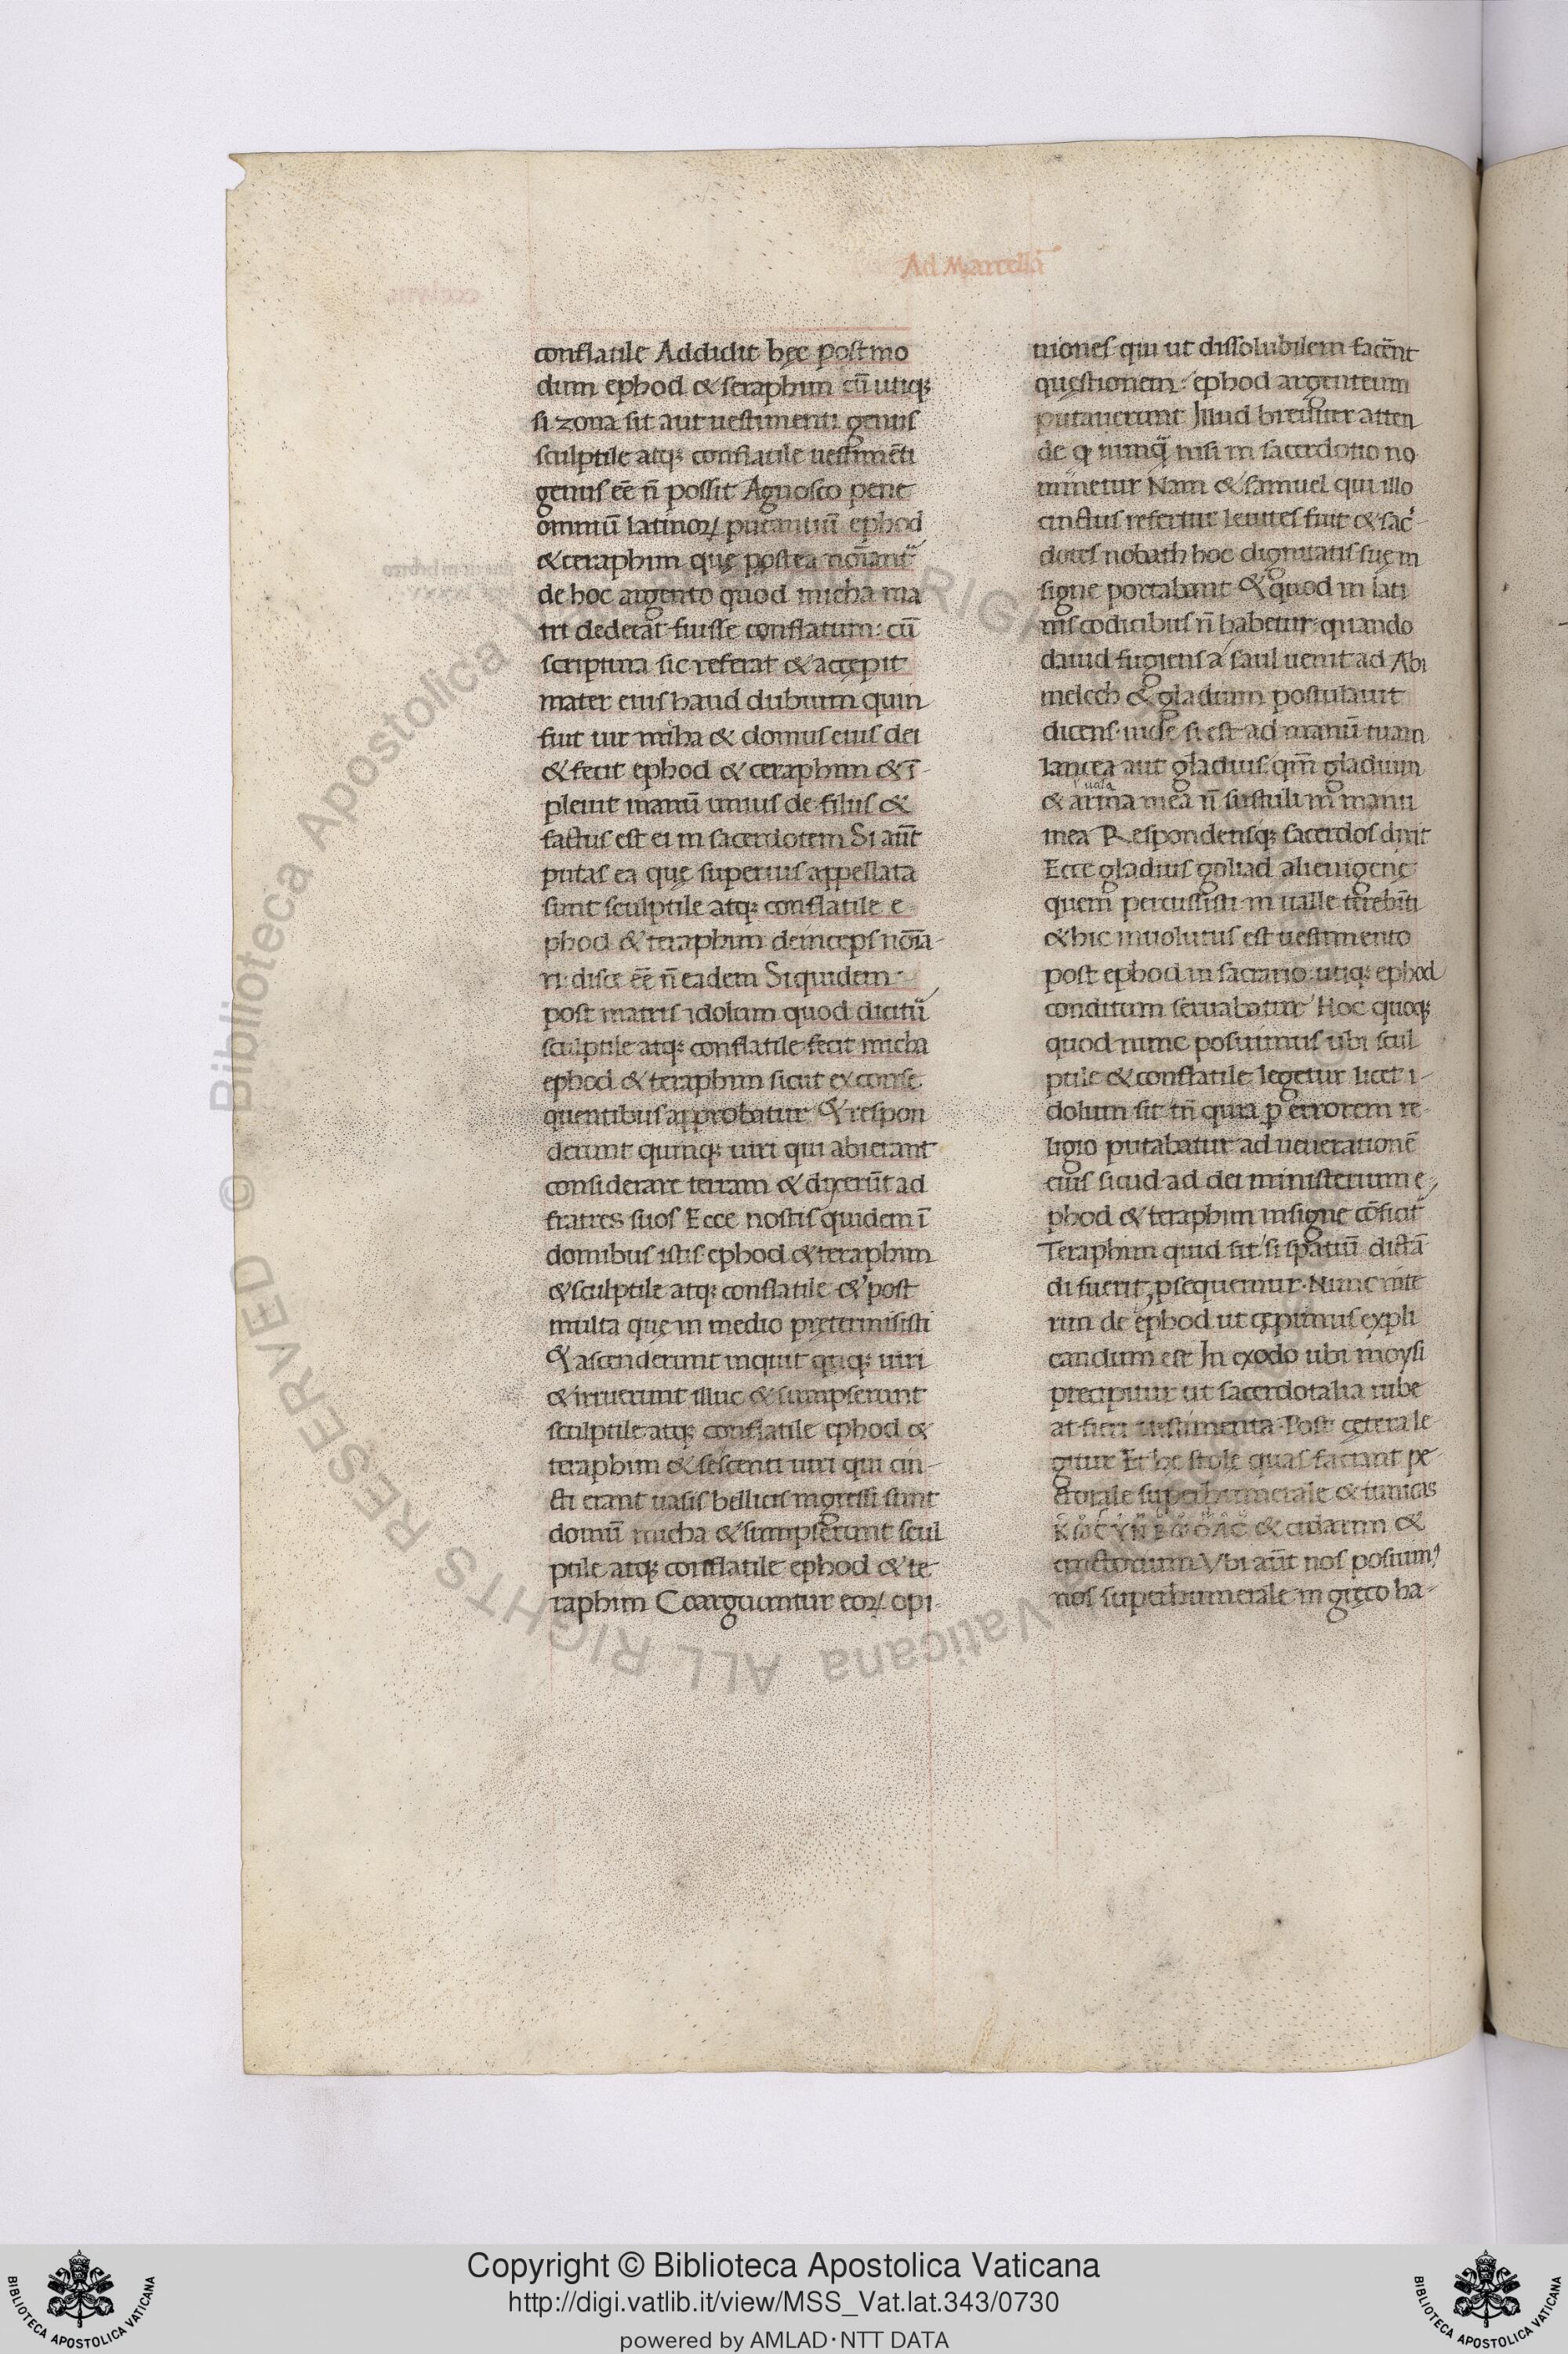 Ad Marcellā
conflatile Addidit hęc postmo
dum ephod & seraphim cū utiqꝫ
si zona sit aut uestimenti genus
sculptile atqꝫ conflatile uestimēti
genus eē n̄ possit Agnosco pene
omniū latinoꝝ putantiū ephod
& teraphim quę postea nōiant᷑
de hoc argento quod micha ma
tri dederat fuisse conflatum: cū
scriptura sic referat & accepit
mater eius haud dubium quin
fuit uir miha & domus eius dei
& fecit ephod & teraphim & ī-
pleuit manū unius de filiis &
factus est ei in sacerdotem Si aūt
putas ea quę superius appellata
sunt sculptile atqꝫ conflatile e-
phod & teraphim deinceps nōīa-
ri: disce eē n̄ eadem Siquidem
post matris idolum quod dicit᷑
sculptile atqꝫ conflatile fecit micha
ephod & teraphim sicut ex conse
quentibus approbatur Et respon
derunt quinqꝫ uiri qui abierant
considerare terram & dixerūt ad
fratres suos Ecce nostis quidem ī
domibus istis ephod & teraphim
& sculptile atqꝫ conflatile & post
multa quę in medio pretermisisti
Et ascenderunt inquit quīqꝫ uiri
& irruerunt illuc & sumpserunt
sculptile atqꝫ conflatile ephod &
teraphim & sescenti uiri qui cin-
cti erant uasis bellicis ingressi sunt
domū micha & sumpserunt scul
ptile atqꝫ conflatile ephod & te
raphim Coarguuntur eoꝝ opi
niones qui ut dissolubilem facēnt
quęstionem: ephod argenteum
putauerunt Illud breuiter atten
de ꝙ nunq̄ nisi in sacerdotio no
minetur Nam & samuel qui illo
cinctus refertur leuites fuit & sac̄
dotes nobath hoc dignitatis suę in
signe portabant Et quod in lati
nis codicibus n̄ habetur: quando
dauid fugiens a saul uenit ad Abi
melech & gladium postulauit
dicens. uide si est ad manū tuam
lancea aut gladius. qm̄ gladium
uasa
& arma mea n̄ sustuli in manu
mea Respondensqꝫ sacerdos dixit
Ecce gladius goliad alienigenę
quem percussisti in ualle terebīti
& hic inuolutus est uestimento
post ephod in sacrario. utiqꝫ ephod
conditum seruabatur Hoc quoqꝫ
quod nunc posuimus ubi scul
ptile & conflatile legetur licet i-
dolum sit tn̄ quia ꝑ errorem re-
ligio putabatur ad uenerationē
eius sicud ad dei ministerium e,
phod & teraphim insigne cōficit
Teraphim quid sit si spatiū dictā
di fuerit, ꝑsequemur. Nunc inte
rim de ephod ut cępimus expli
candum est In exodo ubi moysi
precipitur ut sacerdotalia iube
at fieri uestimenta. Post cetera le-
gitur Et hę stolę quas facient pe-
ctorale superhumerale & tunicas
& cidarim &
cinctorium Vbi aūt nos posuimꝰ
nos superhumerale in gręco ha-
© Biblioteca Apostolica Vaticana ALL RIGHTS RESERVED
Copyright © Biblioteca Apostolica Vaticana
http://digi.vatlib.it/view/MSS_Vat.lat.343/0730
powered by AMLAD·NTT DATA
BIBLIOTECA APOSTOLICA VATICANA
BIBLIOTECA APOSTOLICA VATICANA